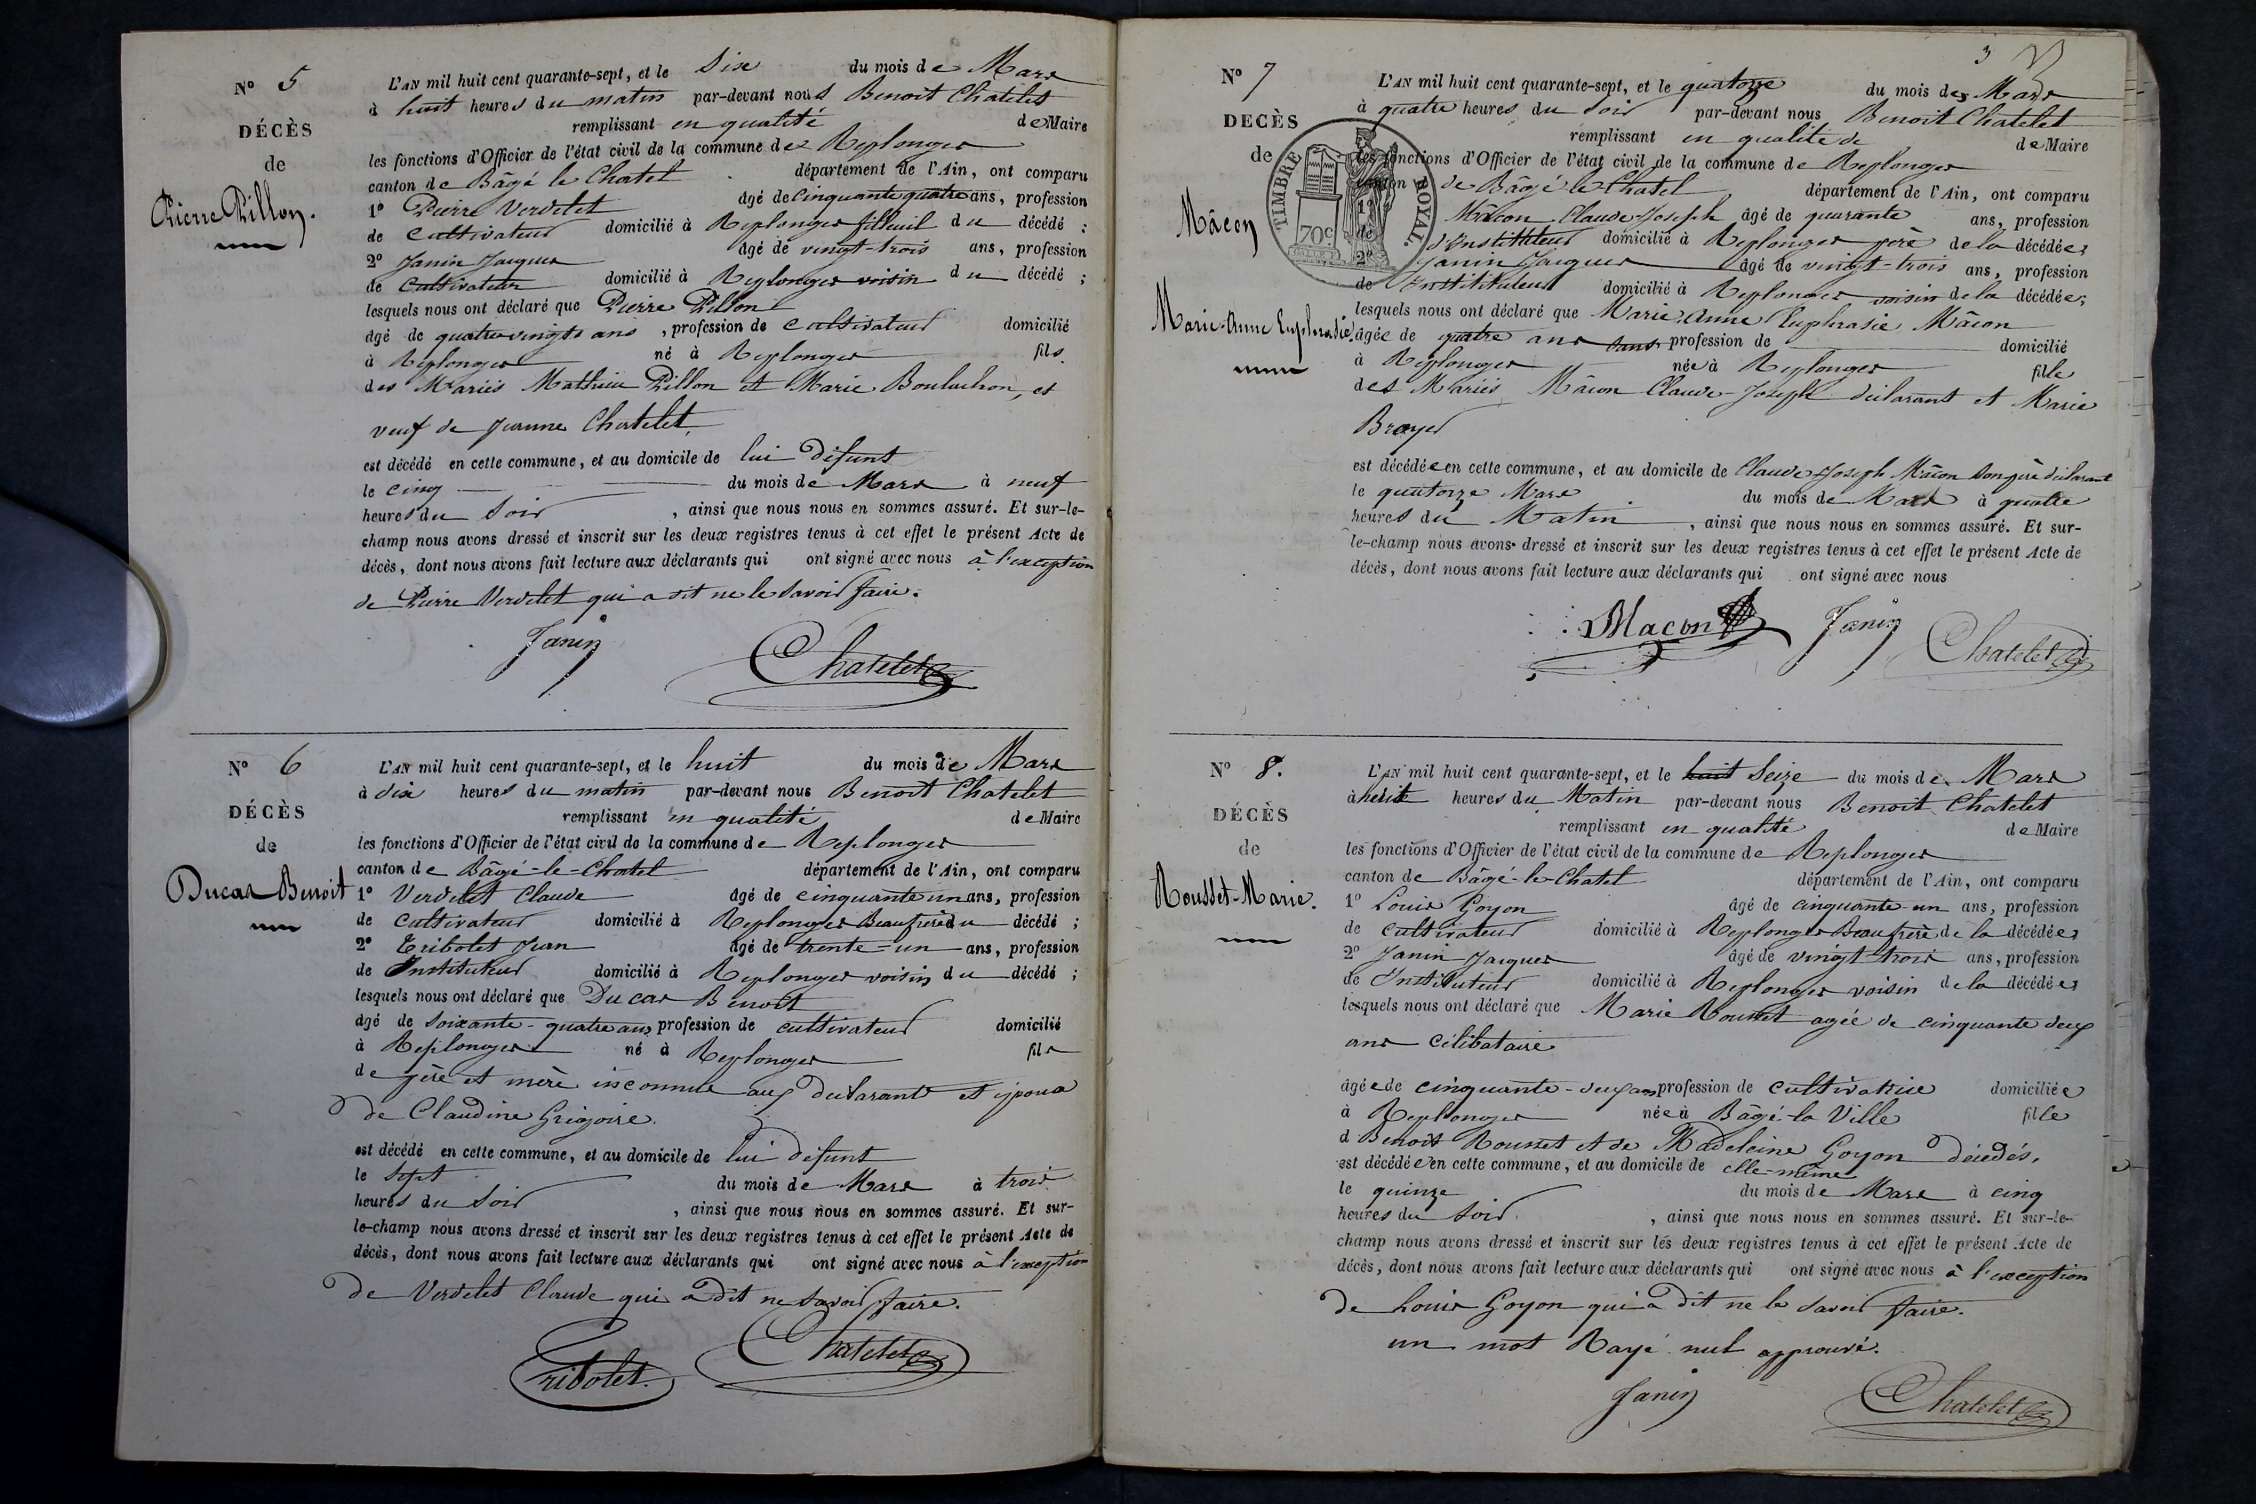 N° 5
DÉCÈS
de
Pierre Pillon.
L'AN mil huit cent quarante-sept, et le Six du mois de Mars
à huit heures du matin par-devant nous Benoit Chatelet
remplissant en qualité de Maire
les fonctions d'Officier de l'état civil de la commune de Replonges
canton de Bâgé le Chatel département de l'Ain, ont comparu
1° Pierre Verdelet âgé de cinquante quatre ans, profession
de cultivateur domicilié à Replonges filleuil du décédé ;
2° Janin Jacques âgé de vingt-trois ans, profession
de cultivateur domicilié à Replonges voisin du décédé ;
lesquels nous ont déclaré que Pierre Pillon
âgé de quatre-vingts ans, profession de cultivateur domicilié
à Replonges né à Replonges fils
des Mariés Mathieu Pillon et Marie Bouluchon, et
veuf de Jeanne Chatelet,
est décédé en cette commune, et au domicile de lui défunt
le cinq du mois de Mars à neuf
heures du Soir, ainsi que nous nous en sommes assuré. Et sur-le-
champ nous avons dressé et inscrit sur les deux registres tenus à cet effet le présent Acte de
décès, dont nous avons fait lecture aux déclarants qui ont signé avec nous à l'exception
de Pierre Verdelet qui a dit ne le savoir faire.
Janin Chatelet
N° 6
DÉCÈS
de
Ducas Benoit
L'AN mil huit cent quarante-sept, et le huit du mois de Mars
à dix heures du matin par-devant nous Benoit Chatelet
remplissant en qualité de Maire
les fonctions d'Officier de l'état civil de la commune de Replonges
canton de Bâgé-le-Chatel département de l'Ain, ont comparu
1° Verdelet Claude âgé de cinquante un ans, profession
de cultivateur domicilié à Replonges Beaufrère du décédé ;
2° Tribolet Jean âgé de trente-un ans, profession
de Instituteur domicilié à Replonges voisin du décédé ;
lesquels nous ont déclaré que Ducas Benoit
âgé de soixante-quatre ans, profession de cultivateur domicilié
à Replonges né à Replonges fils
de père et mère inconnue aux déclarants et époux
de Claudine Grégoire.
est décédé en cette commune, et au domicile de lui défunt
le sept du mois de Mars à trois
heures du Soir, ainsi que nous nous en sommes assuré. Et sur-
le-champ nous avons dressé et inscrit sur les deux registres tenus à cet effet le présent Acte de
décès, dont nous avons fait lecture aux déclarants qui ont signé avec nous à l'exception
de Verdelet Claude qui a dit ne savoir faire.
Tribolet. Chatelet
3
N° 7
DECÈS
de
Mâcon
Marie-Anne Euphrasie
TIMBRE ROYAL.
70c
L'AN mil huit cent quarante-sept, et le quatorze du mois de Mars
à quatre heures du Soir par-devant nous Benoit Chatelet
remplissant en qualité de de Maire
les fonctions d'Officier de l'état civil de la commune de Replonges
canton de Bâgé le Chatel département de l'Ain, ont comparu
1° Mâcon Claude-Joseph âgé de quarante ans, profession
de d'Instituteur domicilié à Replonges père de la décédée
2° Janin Jacques âgé de vingt-trois ans, profession
de Instituteur domicilié à Replonges voisin de la décédée;
lesquels nous ont déclaré que Marie Anne Euphrasie Mâcon
âgée de quatre ans sans profession de domicilié
à Replonges née à Replonges fille
des Mariés Mâcon Claude-Joseph déclarant et Marie
Broyer
est décédée en cette commune, et au domicile de Claude-Joseph Mâcon son père déclarant
le quatorze Mars du mois de Mars à quatre
heures du Matin, ainsi que nous nous en sommes assuré. Et sur-
le-champ nous avons dressé et inscrit sur les deux registres tenus à cet effet le présent Acte de
décès, dont nous avons fait lecture aux déclarants qui ont signé avec nous
Macon Janin Chatelet
N° 8.
DÉCÈS
de
Rousset-Marie.
L'AN mil huit cent quarante-sept, et le huit Seize du mois de Mars
à huit heures du Matin par-devant nous Benoit Chatelet
remplissant en qualité de Maire
les fonctions d'Officier de l'état civil de la commune de Replonges
canton de Bâgé-le-Chatel département de l'Ain, ont comparu
1° Louis Goyon âgé de cinquante-un ans, profession
de cultivateur domicilié à Replonges Beaufrère de la décédée
2° Janin Jacques âgé de vingt-trois ans, profession
de Instituteur domicilié à Replonges voisin de la décédée
lesquels nous ont déclaré que Marie Rousset agée de cinquante deux
ans célibataire
âgée de cinquante-deux ans profession de cultivatrice domiciliée
à Replonges née à Bâgé-la Ville fille
d Benoit Rousset et de Madeleine Goyon décédés,
est décédée en cette commune, et au domicile de elle-même
le quinze du mois de Mars à cinq
heures du Soir, ainsi que nous nous en sommes assuré. Et sur-le-
champ nous avons dressé et inscrit sur les deux registres tenus à cet effet le présent Acte de
décès, dont nous avons fait lecture aux déclarants qui ont signé avec nous à l'exception
de Louis Goyon qui a dit ne le savoir faire.
un mot Rayé nul approuvé.
Janin Chatelet